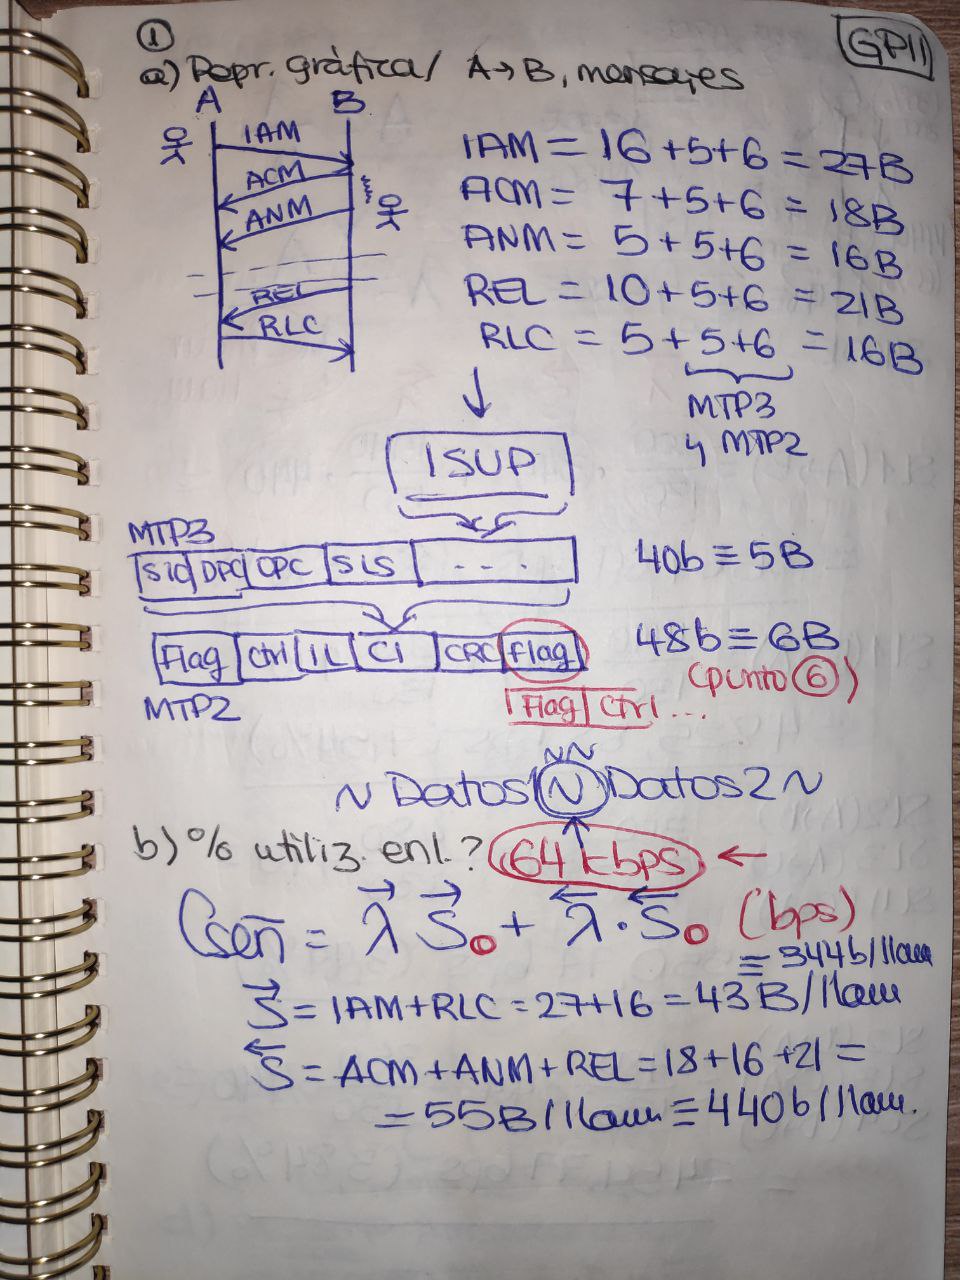 GP11
①
a) Repr. gráfica / A → B, mensajes
A B
IAM
ACM
ANM
REL
RLC
IAM = 16 + 5 + 6 = 27B
ACM = 7 + 5 + 6 = 18B
ANM = 5 + 5 + 6 = 16B
REL = 10 + 5 + 6 = 21B
RLC = 5 + 5 + 6 = 16B
MTP3
y MTP2
ISUP
MTP3
SIO DPC OPC SLS ... 40b ≡ 5B
Flag Ctrl IL CI CRC Flag 48b ≡ 6B
(punto ⑥)
MTP2
Flag Ctrl ...
ÑÑ
~ Datos1 Ñ Datos2 ~
b) % utiliz. enl.? 64 kbps ←
Cseñ = λ⃗ S⃗. + λ⃖ · S⃖. (bps)
≡ 344b/llam
S⃗ = IAM + RLC = 27 + 16 = 43B/llam
S⃖ = ACM + ANM + REL = 18 + 16 + 21 =
= 55B/llam ≡ 440b/llam.